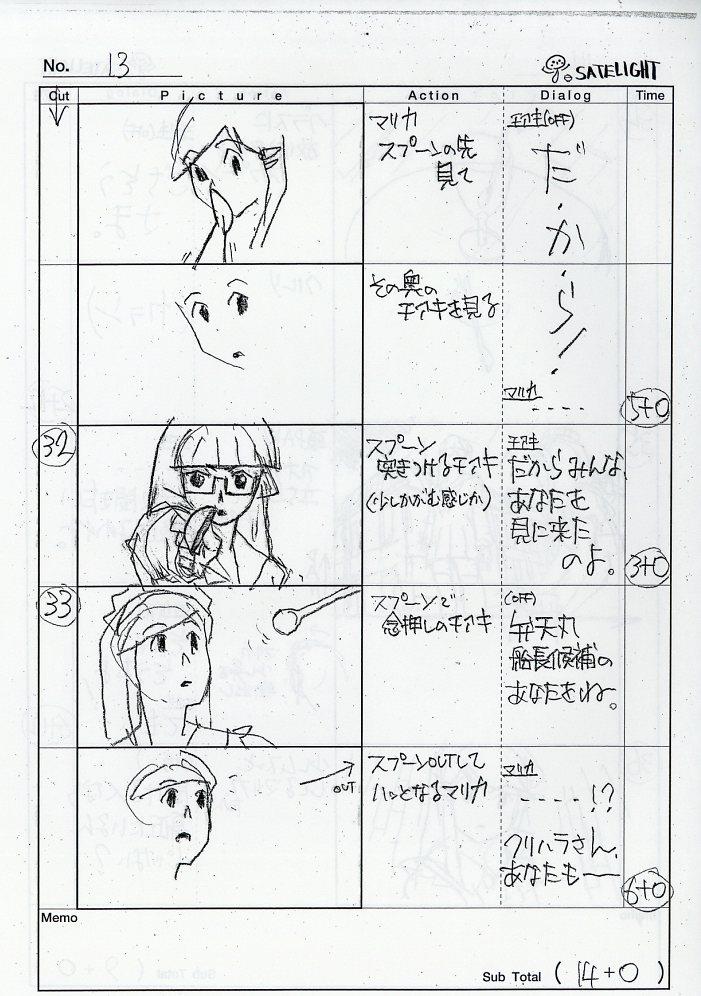 No. 13
SATELIGHT
Cut
Picture
Action
Dialog
Time
マリカ
スプーンの先
見て
チアキ(OFF)
だ・か
・ら!
その奥の
チアキを見る
マリカ
・・・・
5+0
32
スプーン
突きつけるチアキ
(少しかがむ感じか)
チアキ
だからみんな、
あなたを
見に来た
のよ。
3+0
33
スプーンで
念押しのチアキ
(OFF)
弁天丸
船長候補の
あなたをね。
OUT
スプーンOUTして
ハッとなるマリカ
マリカ
・・・・!?
クリハラさん、
あなたも——
6+0
Memo
Sub Total (14+0)